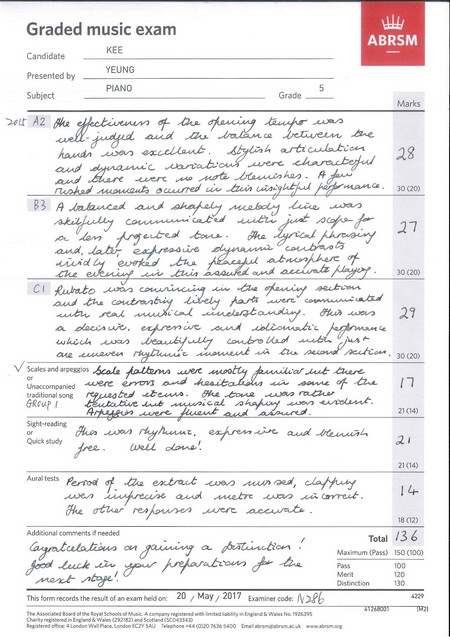 Graded music exam
ABRSM
Candidate KEE
Presented by YEUNG
Subject PIANO Grade 5
Marks
2015 A2 The effectiveness of the opening tempo was
well-judged and the balance between the
hands was excellent. Stylish articulation
and dynamic variations were characterful
and there were no note blemishes. A few
rushed moments occurred in this insightful performance.
28
30 (20)
B3 A balanced and shapely melody line was
skilfully communicated with just scope for
a less projected tone. The lyrical phrasing
and, later, expressive dynamic contrasts
vividly evoked the peaceful atmosphere of
the evening in this assured and accurate playing.
27
30 (20)
C1 Rubato was convincing in the opening section
and the contrasting lively parts were communicated
with real musical understanding. This was
a decisive, expressive and idiomatic performance
which was beautifully controlled with just
one uneven rhythmic moment in the second section.
29
30 (20)
✓ Scales and arpeggios
or
Unaccompanied
traditional song
GROUP 1
Scale patterns were mostly familiar but there
were errors and hesitations in some of the
requested items. The tone was rather
tentative but musical shaping was evident.
Arpeggios were fluent and assured.
17
21 (14)
Sight-reading
or
Quick study
This was rhythmic, expressive and blemish
free. Well done!
21
21 (14)
Aural tests
Period of the extract was missed, clapping
was imprecise and metre was incorrect.
The other responses were accurate.
14
18 (12)
Additional comments if needed
Congratulations on gaining a Distinction!
Good luck in your preparations for the
next stage!
Total 136
Maximum (Pass) 150 (100)
Pass 100
Merit 120
Distinction 130
This form records the result of an exam held on: 20 / May / 2017 Examiner code: N286
4229
The Associated Board of the Royal Schools of Music. A company registered with limited liability in England & Wales No. 1926395
Charity registered in England & Wales (292182) and Scotland (SC043343)
Registered office: 4 London Wall Place, London EC2Y 5AU Telephone +44 (0)20 7636 5400 Email abrsm@abrsm.ac.uk www.abrsm.org
61268001 (M2)